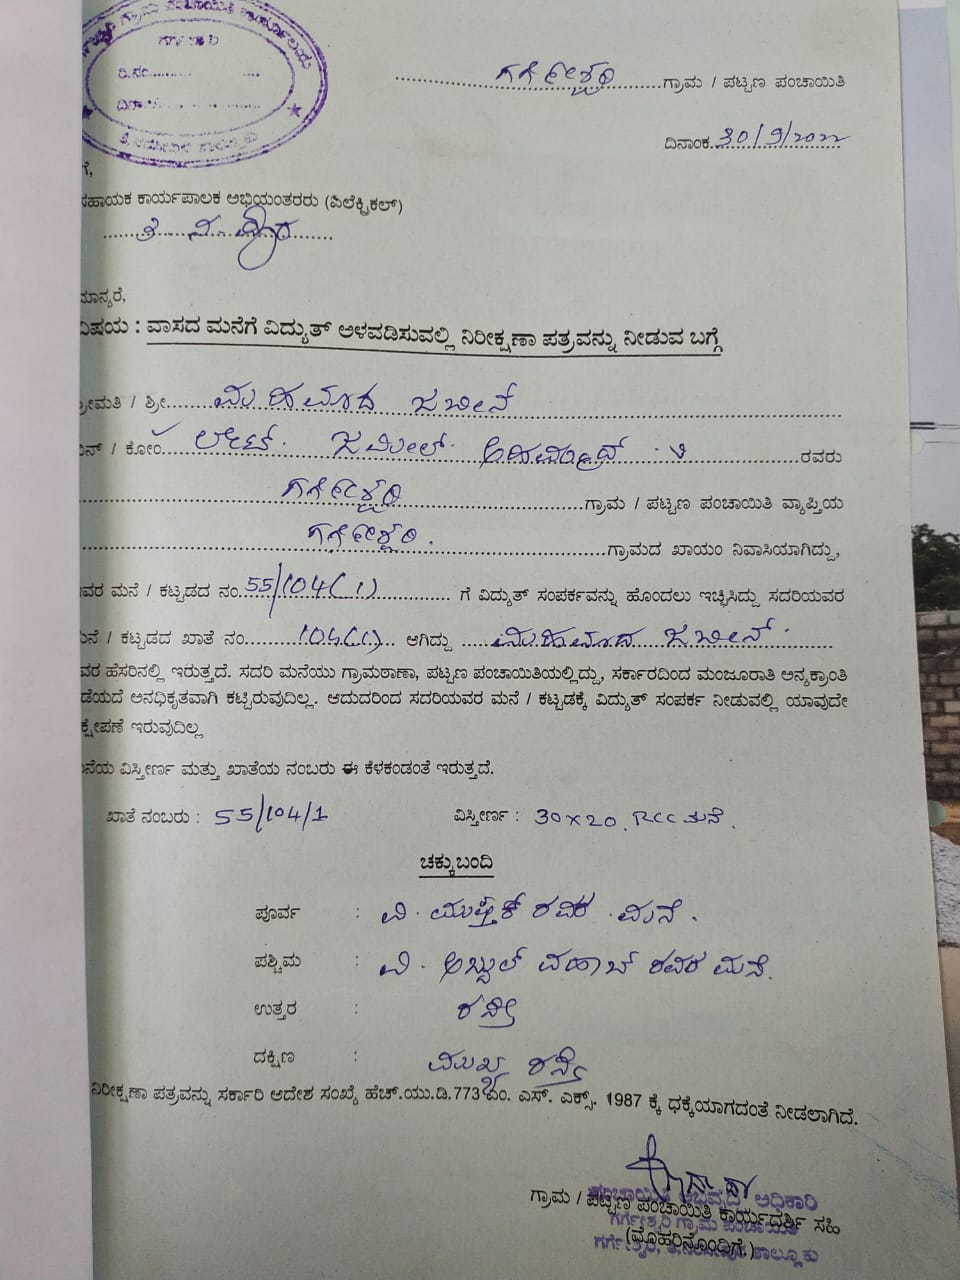 ಗ್ರಾಮ ಪಂಚಾಯಿತಿ ಕಾರ್ಯಾಲಯ
ಗರ್ಗೇಶ್ವರಿ
ಗ್ರಾಮ / ಪಟ್ಟಣ ಪಂಚಾಯಿತಿ
ದಿನಾಂಕ 30/9/2022
ಗೆ,
ಸಹಾಯಕ ಕಾರ್ಯಪಾಲಕ ಅಭಿಯಂತರರು (ಎಲೆಕ್ಟ್ರಿಕಲ್)
ಮಾನ್ಯರೆ,
ವಿಷಯ : ವಾಸದ ಮನೆಗೆ ವಿದ್ಯುತ್ ಅಳವಡಿಸುವಲ್ಲಿ ನಿರೀಕ್ಷಣಾ ಪತ್ರವನ್ನು ನೀಡುವ ಬಗ್ಗೆ
ಶ್ರೀಮತಿ / ಶ್ರೀ ಮುಹಮದ ಜಬೀನ್
ಬಿನ್ / ಕೋಂ ಲೇಟ್. ಜಮೀಲ್ ಅಹಮದ್ ರವರು
ಗರ್ಗೇಶ್ವರಿ ಗ್ರಾಮ / ಪಟ್ಟಣ ಪಂಚಾಯಿತಿ ವ್ಯಾಪ್ತಿಯ
ಗರ್ಗೇಶ್ವರಿ. ಗ್ರಾಮದ ಖಾಯಂ ನಿವಾಸಿಯಾಗಿದ್ದು,
ವರ ಮನೆ / ಕಟ್ಟಡದ ನಂ. 55/104(1) ಗೆ ವಿದ್ಯುತ್ ಸಂಪರ್ಕವನ್ನು ಹೊಂದಲು ಇಚ್ಛಿಸಿದ್ದು ಸದರಿಯವರ
ಮನೆ / ಕಟ್ಟಡದ ಖಾತೆ ನಂ. 104(1) ಆಗಿದ್ದು ಮುಹಮದ ಜಬೀನ್
ವರ ಹೆಸರಿನಲ್ಲಿ ಇರುತ್ತದೆ. ಸದರಿ ಮನೆಯು ಗ್ರಾಮಠಾಣಾ, ಪಟ್ಟಣ ಪಂಚಾಯಿತಿಯಲ್ಲಿದ್ದು, ಸರ್ಕಾರದಿಂದ ಮಂಜೂರಾತಿ ಅನ್ಯಕ್ರಾಂತಿ
ಡೆಯದೆ ಅನಧಿಕೃತವಾಗಿ ಕಟ್ಟಿರುವುದಿಲ್ಲ. ಆದುದರಿಂದ ಸದರಿಯವರ ಮನೆ / ಕಟ್ಟಡಕ್ಕೆ ವಿದ್ಯುತ್ ಸಂಪರ್ಕ ನೀಡುವಲ್ಲಿ ಯಾವುದೇ
ಕ್ಷೇಪಣೆ ಇರುವುದಿಲ್ಲ
ನೆಯ ವಿಸ್ತೀರ್ಣ ಮತ್ತು ಖಾತೆಯ ನಂಬರು ಈ ಕೆಳಕಂಡಂತೆ ಇರುತ್ತದೆ.
ಖಾತೆ ನಂಬರು : 55/104/1 ವಿಸ್ತೀರ್ಣ : 30x20. RCC ಮನೆ.
ಚಕ್ಕುಬಂದಿ
ಪೂರ್ವ : ವಿ. ಮುಷ್ತಾಕ್ ರವರ ಮನೆ.
ಪಶ್ಚಿಮ : ವಿ. ಅಬ್ದುಲ್ ವಹಾಬ್ ರವರ ಮನೆ.
ಉತ್ತರ : ರಸ್ತೆ
ದಕ್ಷಿಣ : ಮುಖ್ಯ ರಸ್ತೆ
ನಿರೀಕ್ಷಣಾ ಪತ್ರವನ್ನು ಸರ್ಕಾರಿ ಆದೇಶ ಸಂಖ್ಯೆ ಹೆಚ್.ಯು.ಡಿ.773 ಎಂ. ಎಸ್. ಎಕ್ಸ್. 1987 ಕ್ಕೆ ಧಕ್ಕೆಯಾಗದಂತೆ ನೀಡಲಾಗಿದೆ.
ಪಂಚಾಯಿತಿ ಅಭಿವೃದ್ಧಿ ಅಧಿಕಾರಿ
ಗ್ರಾಮ / ಪಟ್ಟಣ ಪಂಚಾಯಿತಿ ಕಾರ್ಯದರ್ಶಿ ಸಹಿ
ಗರ್ಗೇಶ್ವರಿ ಗ್ರಾಮ ಪಂಚಾಯಿತಿ
(ಮೊಹರಿನೊಂದಿಗೆ)